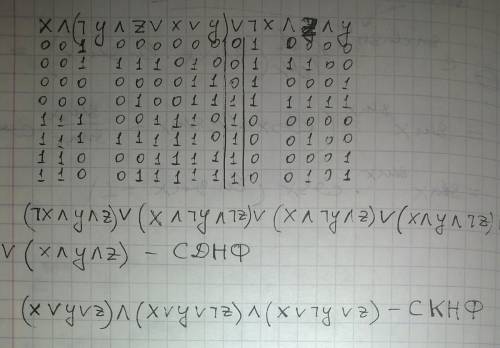 X ∧ (¬ y ∧ z ∨ x ∨ y) ∨ ¬ x ∧ z ∧ y
0 0 1 0 0 0 0 0 0 0 1 0 0 0 0
0 0 1 1 1 1 0 1 0 0 1 0 1 0 0
0 0 0 0 0 0 0 1 1 0 1 0 0 0 1
0 0 0 0 1 0 0 1 1 1 1 1 1 1 1
1 1 1 0 0 1 1 1 0 1 0 0 0 0 0
1 1 1 1 1 1 1 1 0 1 0 0 1 0 0
1 1 0 0 0 1 1 1 1 1 0 0 0 0 1
1 1 0 0 1 1 1 1 1 1 0 0 1 0 1
(¬X∧y∧z)∨(X∧¬y∧¬z)∨(X∧¬y∧z)∨(x∧y∧¬z)
∨(X∧y∧z) – СДНФ
(X∨y∨z)∧(X∨y∨¬z)∧(X∨¬y∨z) – СКНФ